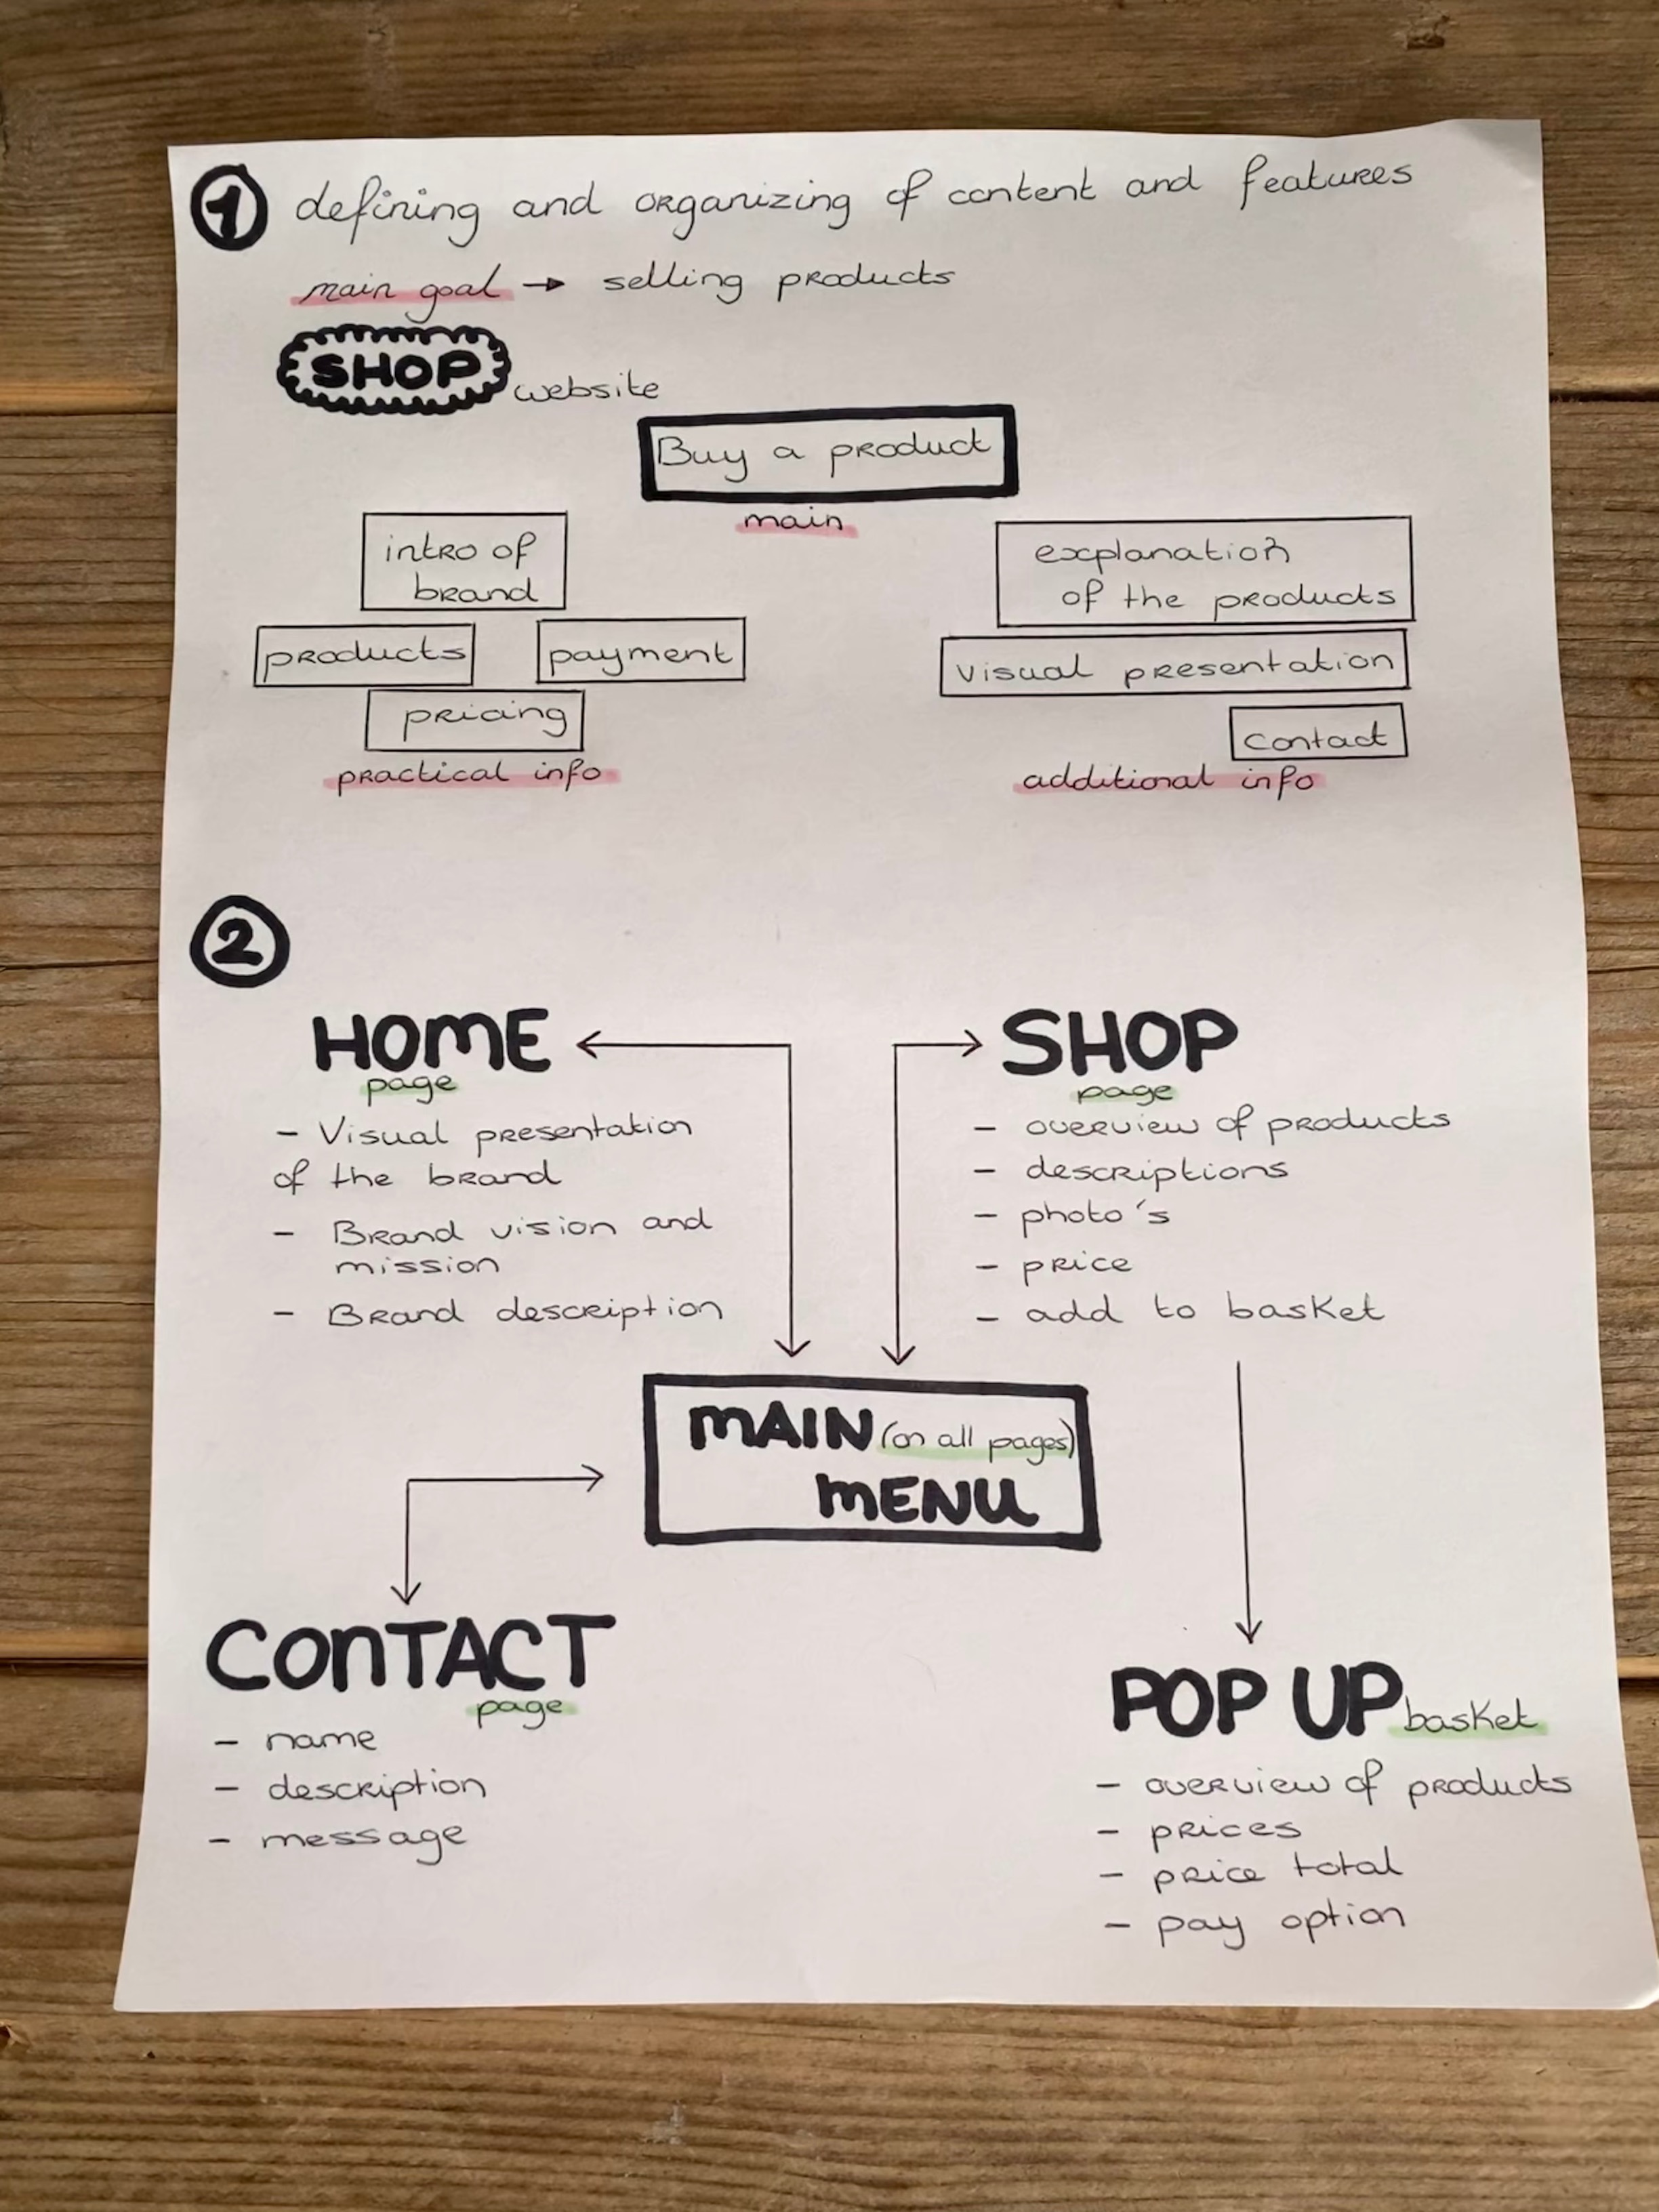 1 defining and organizing of content and features
main goal → selling products
SHOP website
Buy a product
main
intro of
brand
products
payment
pricing
practical info
explanation
of the products
visual presentation
contact
additional info
2
HOME
page
- Visual presentation
of the brand
- Brand vision and
mission
- Brand description
SHOP
page
- overview of products
- descriptions
- photo's
- price
- add to basket
MAIN (on all pages)
MENU
CONTACT
page
- name
- description
- message
POP UP basket
- overview of products
- prices
- price total
- pay option